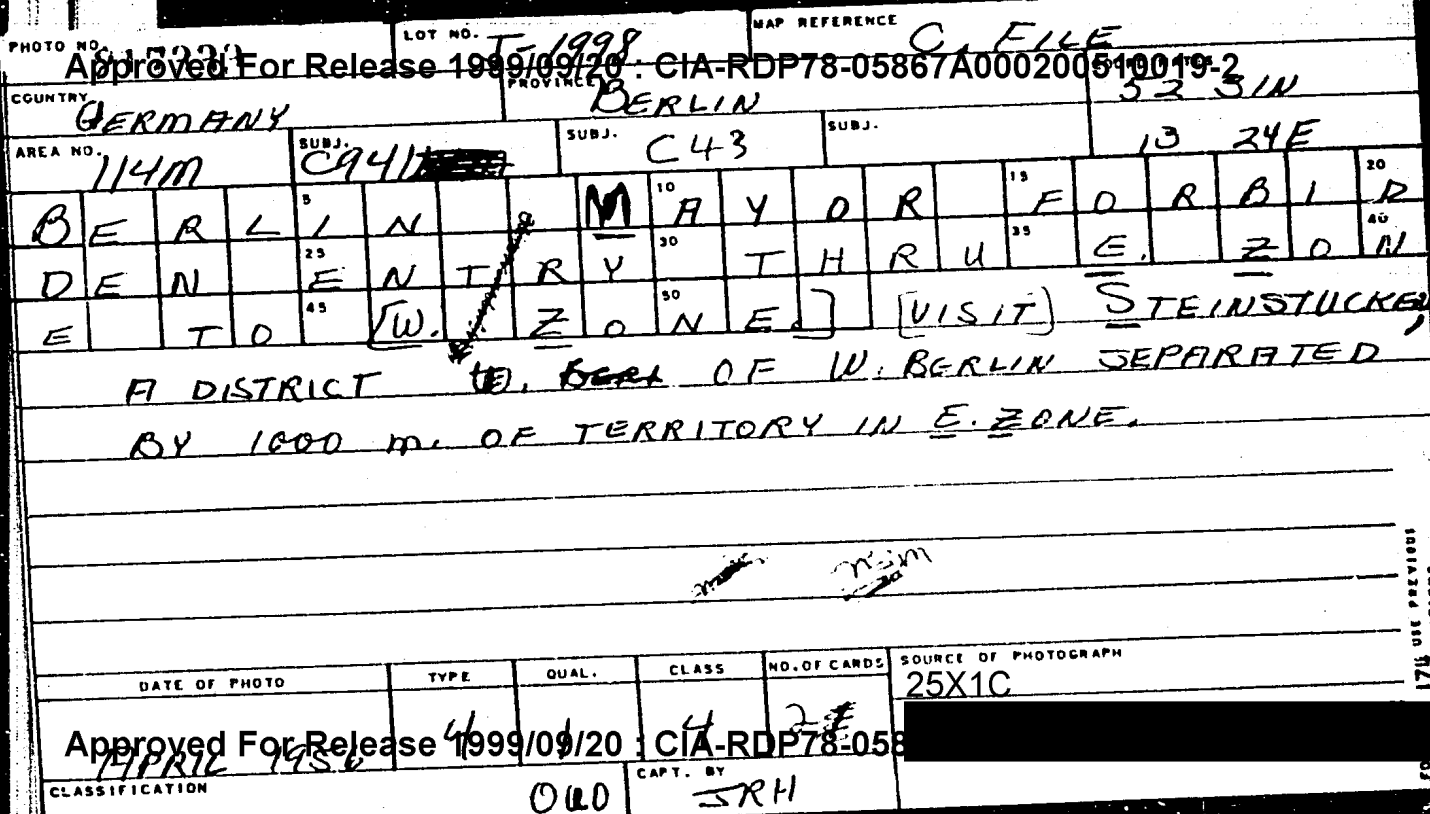 PHOTO NO. LOT NO. T-1998 MAP REFERENCE C. FILE
Approved For Release 1999/09/20 : CIA-RDP78-05867A000200510019-2
COUNTRY GERMANY PROVINCE BERLIN 52 31N
AREA NO. 114M SUBJ. C941 SUBJ. C43 SUBJ. 13 24E
BERLIN MAYOR FORBID
DEN ENTRY THRU E. ZON
E TO [W. ZONE.] [VISIT] STEINSTUCKEN,
A DISTRICT OF W. BERLIN SEPARATED
BY 1000 m. OF TERRITORY IN E. ZONE.
DATE OF PHOTO TYPE QUAL. CLASS NO. OF CARDS SOURCE OF PHOTOGRAPH
25X1C
APRIL 4 1 4 2
Approved For Release 1999/09/20 : CIA-RDP78-058
CLASSIFICATION OUO CAPT. BY JRH
USE PREVIOUS